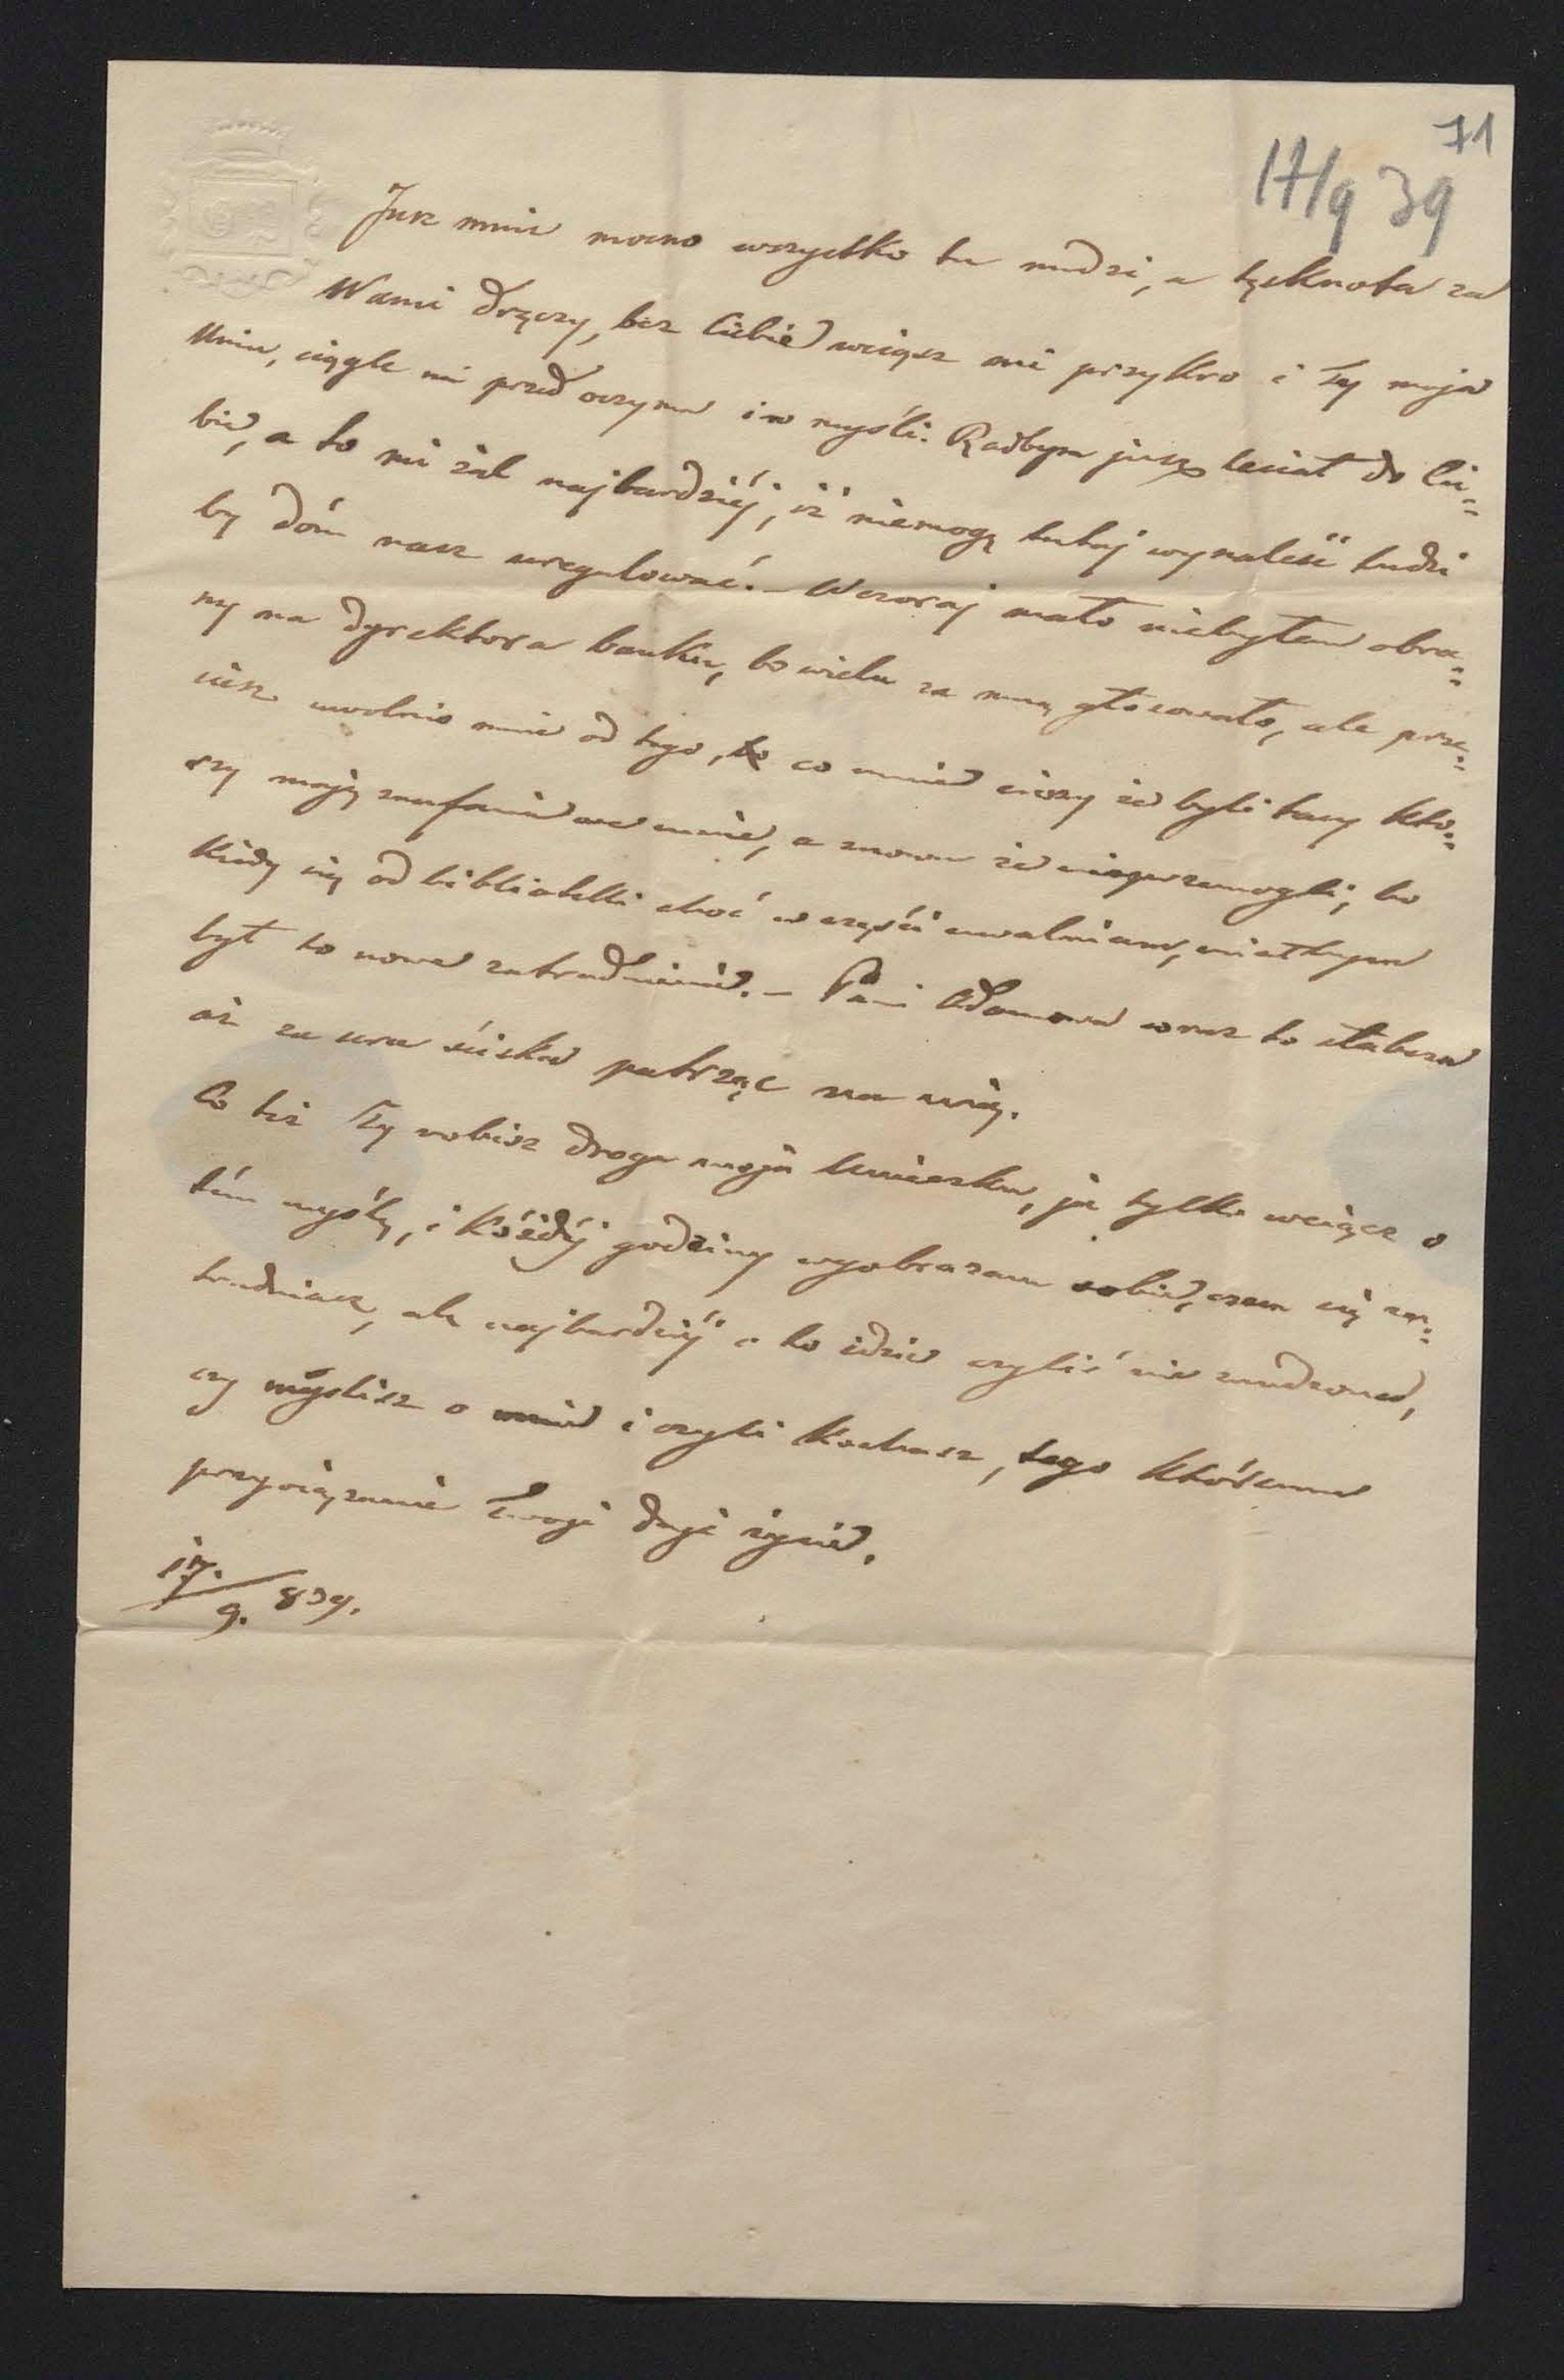 71
17/9 39
Jusz mnie mocno wszystko tu nudzi, a tęsknota za
Wami dręczy, bez Ciebie wciąsz mi przykro i Ty moja
Uniu, ciągle mi przed oczyma i w myśli. Radbym jusz leciał do Cie=
bie, a to mi żal najbardziéj, iż niemogę tutaj wynaleść ludzi
by dóm nasz uregulować. – Wczoraj mało niebyłem obra=
ny na dyrektora banku, bo wielu za mną głosowało, ale prze=
ciesz uwolnio mnie od tego, co mnie cieszy że byli tacy któ=
rzy mają zaufanie we mnie, a znowu że nieprzemogli, bo
kiedy się od biblioteki choć w części uwalniam, miałbym
był to nowe zatrudnienie. – Pani Adamowa coraz to słabsza
aż za serce ściska patrząc na nią.
Co tesz Ty robisz droga moja Unieczku, ja tylko wciąsz o
tém myślę, i kóżdéj godziny wyobrazam sobie, czem się za=
trudniasz, ale najbardziéj o to idzie czyliś nie znudzona,
czy myślisz o mnie i czyli kochasz, tego któremu
przywiązanie Twoje daje życie.
17./9. 839.